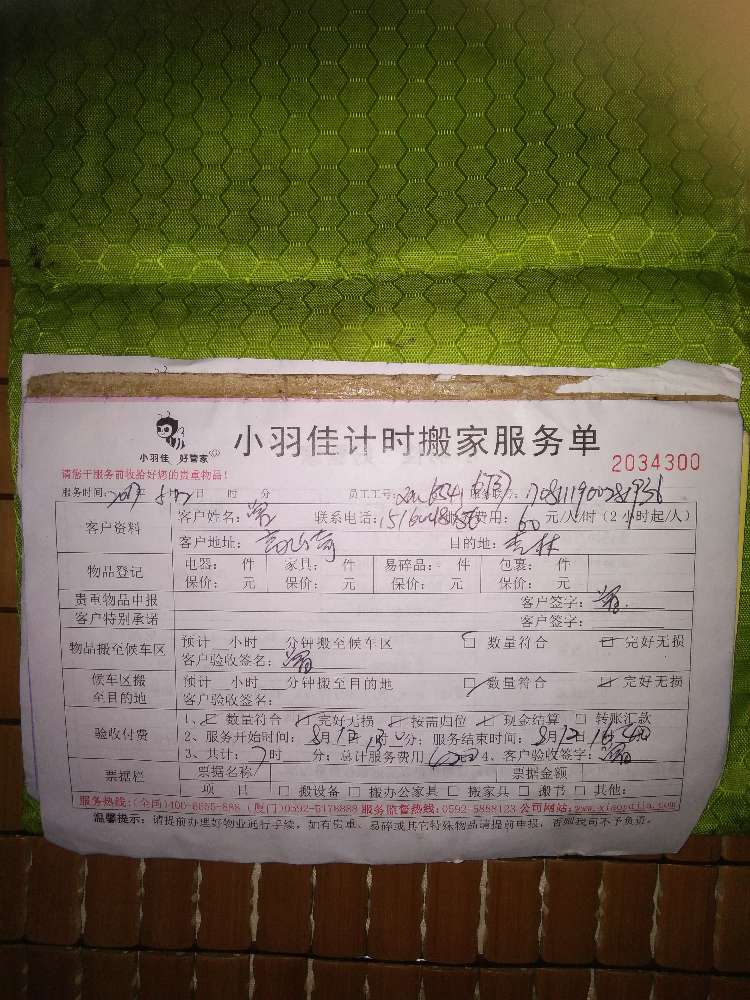 小羽佳 好管家
小羽佳计时搬家服务单
2034300
请您于服务前收给好您的贵重物品!
服务时间: 2017年 8月12日 时 分 员工工号:
客户资料 客户姓名: 联系电话: 费用: 60 元/人/时 (2小时起/人)
客户地址: 目的地: 杏林
物品登记 电器: 件 家具: 件 易碎品: 件 包裹: 件
保价: 元 保价: 元 保价: 元 保价: 元
贵重物品申报 客户签字:
客户特别承诺 客户签字:
物品搬至候车区 预计 小时 分钟搬至候车区 □ 数量符合 □ 完好无损
客户验收签名:
候车区搬至目的地 预计 小时 分钟搬至目的地 □ 数量符合 □ 完好无损
客户验收签名:
验收付费 1、□ 数量符合 □ 完好无损 □ 按需归位 □ 现金结算 □ 转账汇款
2、服务开始时间: 8月12日 分; 服务结束时间: 8月12日
3、共计: 7 时 分; 总计服务费用 4、客户验收签字:
票据栏 票据名称 票据金额
项 目 □ 搬设备 □ 搬办公家具 □ 搬家具 □ 搬书 □ 其他:
服务热线:(全国)400-6655-888 (厦门)0592-5178888 服务监督热线:0592-5888123 公司网站:www.xiaoyujia.com
温馨提示: 请提前办理好物业通行手续, 如有贵重、易碎或其它特殊物品请提前申报, 否则我司不予负责。